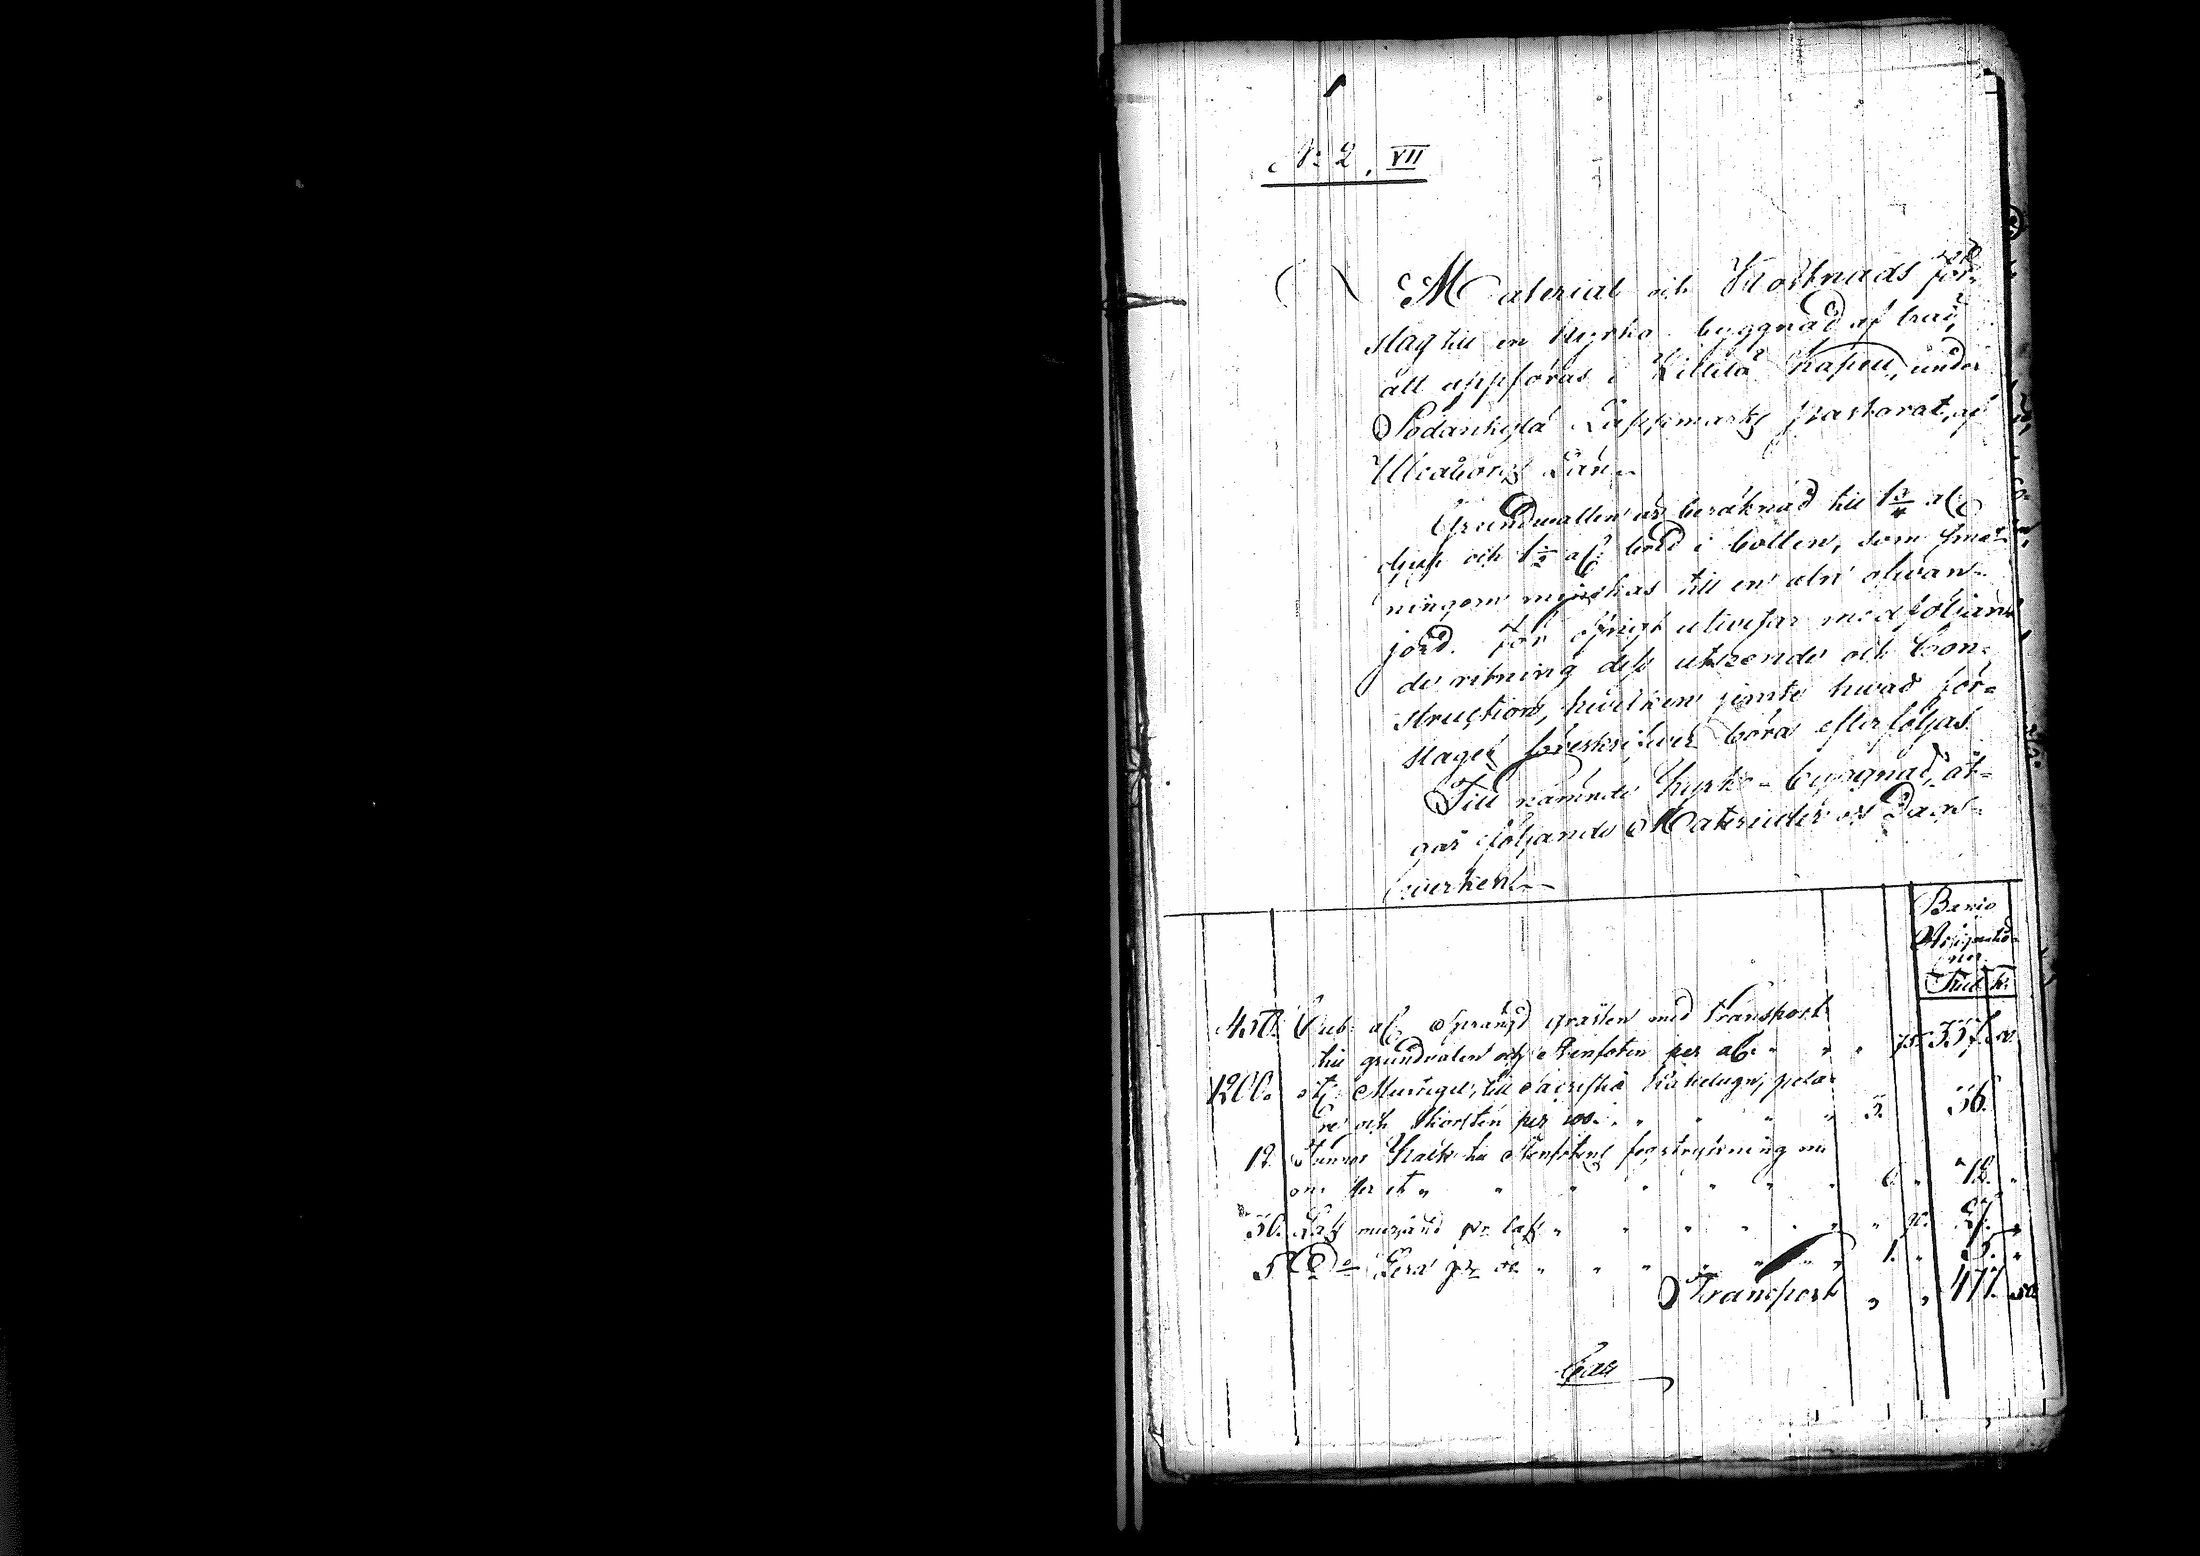 No 2. VII
Material och Kostnads för-
slag till en Kyrko-byggnad af träd,
att uppföras i Kittilä Kapell, under
Sodankylä Lappmarks pastorat, af
Uleåborgs Län.
Grundvallen är beräknad till 1 3/4 al:
djup och 1 1/2 al: bred i botten, som små-
ningom minskas till en aln ofvan
jord. För öfrigt utvisar medföljan-
de ritning dess utseende och Con-
struction, hvilken jemte hvad för-
slaget föreskrifver böra efterföljas.
Till nämnde Kyrko-byggnad, åt-
går följande Materialier och Dags-
verken.
Banco
Assignatio-
ner
Rub. k.
450. Cub. al. Sprängd gråsten med transport
till grundvalen och stenfoten per al. " " " 75. 337. 50.
1200. st. Murtegel, till Sacristie Kakelugn, pela-
re och Skorsten per 100. " " " " 3. 36.
12. Tunnor Kalk till Stenfotens
6. " 12. "
30. Lass mursand pr lass " " " " " " 90. 27. "
5. D:o Lera pr d:o " " " " " 1. " 5. "
Transport " " 477. 50